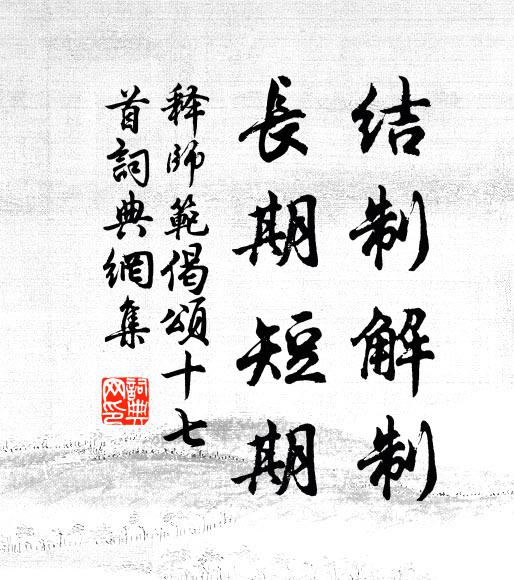 结制解制
長期短期
释師範偈頌十七
首詞典網集
詞典网印